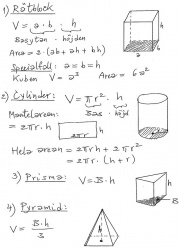 1) Rätblock
V = a · b · h
Basytan · höjden
Area = 2 · (ab + ah + bh)
Specialfall: a = b = h
Kuben V = a³ Area = 6a²
h
b
a
2) Cylinder: V = πr² · h
Bas höjd
Mantelarean:
= 2πr · h
h
2πr
h
r
Hela arean = 2πrh + 2πr²
= 2πr · (h + r)
3) Prisma: V = B · h
h
B
4) Pyramid:
V = B·h / 3
h